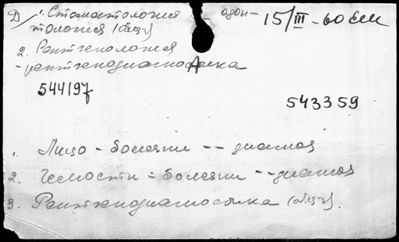 Д 1. Стоматология одон- 15/III-60 
тология (общ.)
2. Рентгенология
-рентгенодиагностика
544197
543359
1. Лицо - болезни -- диагноз
2. Челюсти - болезни -- диагноз
3. Рентгенодиагностика (общ.).